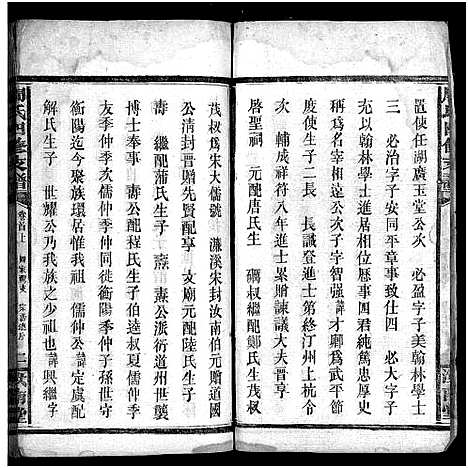 置使任湖廣玉堂公次　必盈字子美翰林學士
三　必治字子安同平章事致仕四　必大字子
充以翰林學士同居相位相歷事四君純篤忠厚
見稱爲當時第一其遺愛可知至子興諱智强生
次　輔成祥符八年進士累贈諫議大夫晉享
啓聖祠　元配唐氏生　礪叔繼配鄭氏生茂叔
茂叔爲宋大儒號　濂溪宋封汝南伯元贈道國
公清封晉贈先賢配享　文廟元配陸氏生子
壽　繼配蒲氏生子　燾　壽公派衍道州世襲
博士奉事　燾公配程氏生子伯逵叔夏儒季
友季仲季次儒季仲季仲同徙衡陽季仲子孫世守
衡陽迄今聚族環居惟我始祖也諱定虞配
解氏生子　世耀公乃我族之少祖也諱興繼字
周氏四修支譜
卷首上
汝南堂